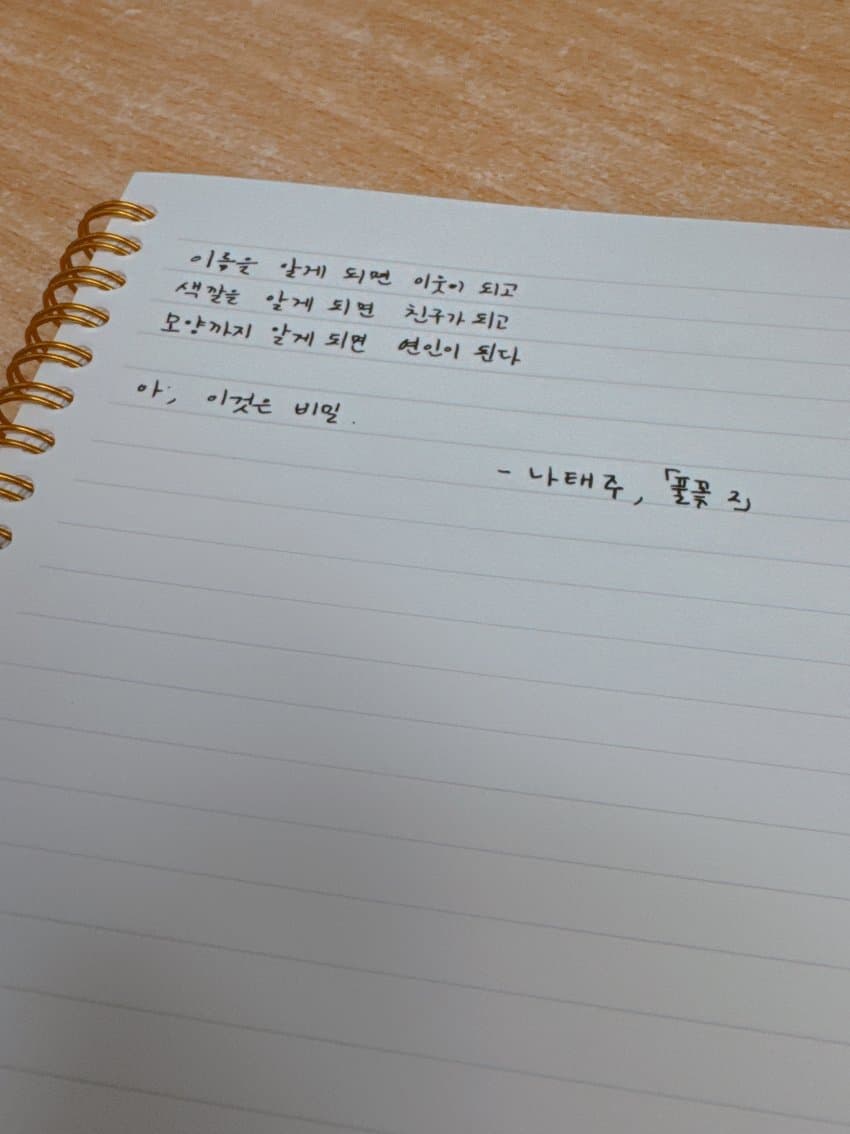 이름을 알게 되면 이웃이 되고
색깔을 알게 되면 친구가 되고
모양까지 알게 되면 연인이 된다
아, 이것은 비밀.
- 나태주, 「풀꽃 2」